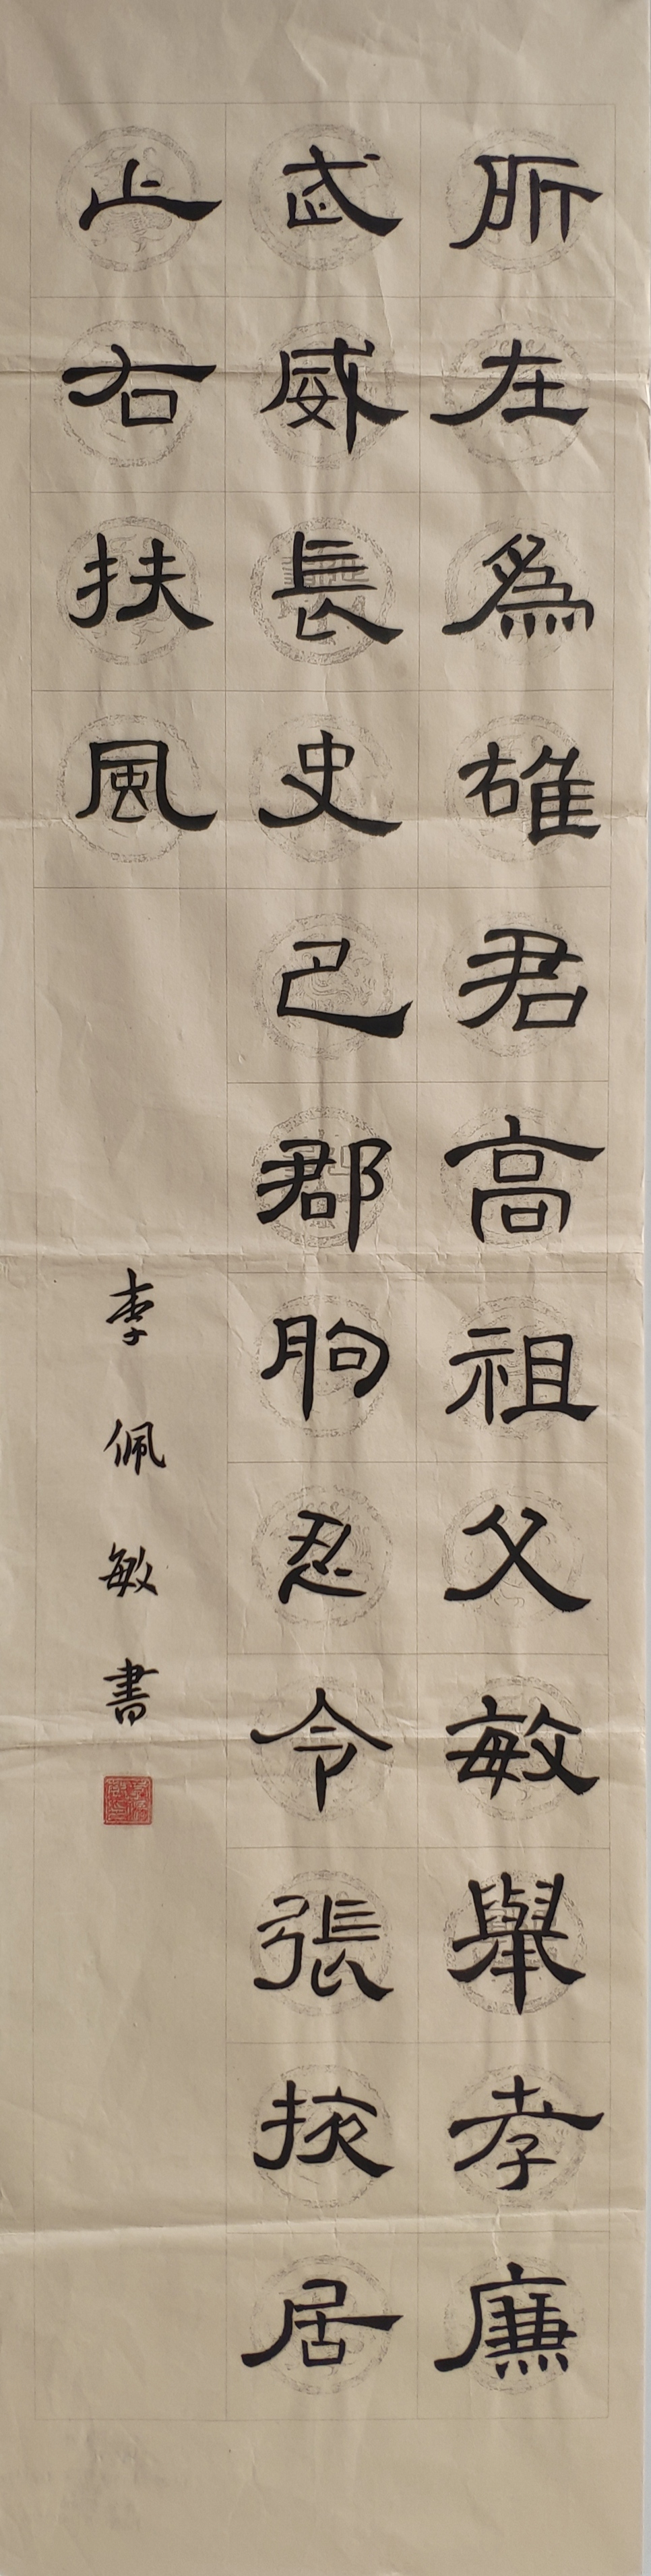 所在為雄君高祖父敏舉孝廉
武威長史巴郡朐忍令張掖居
止右扶風
李佩敏書